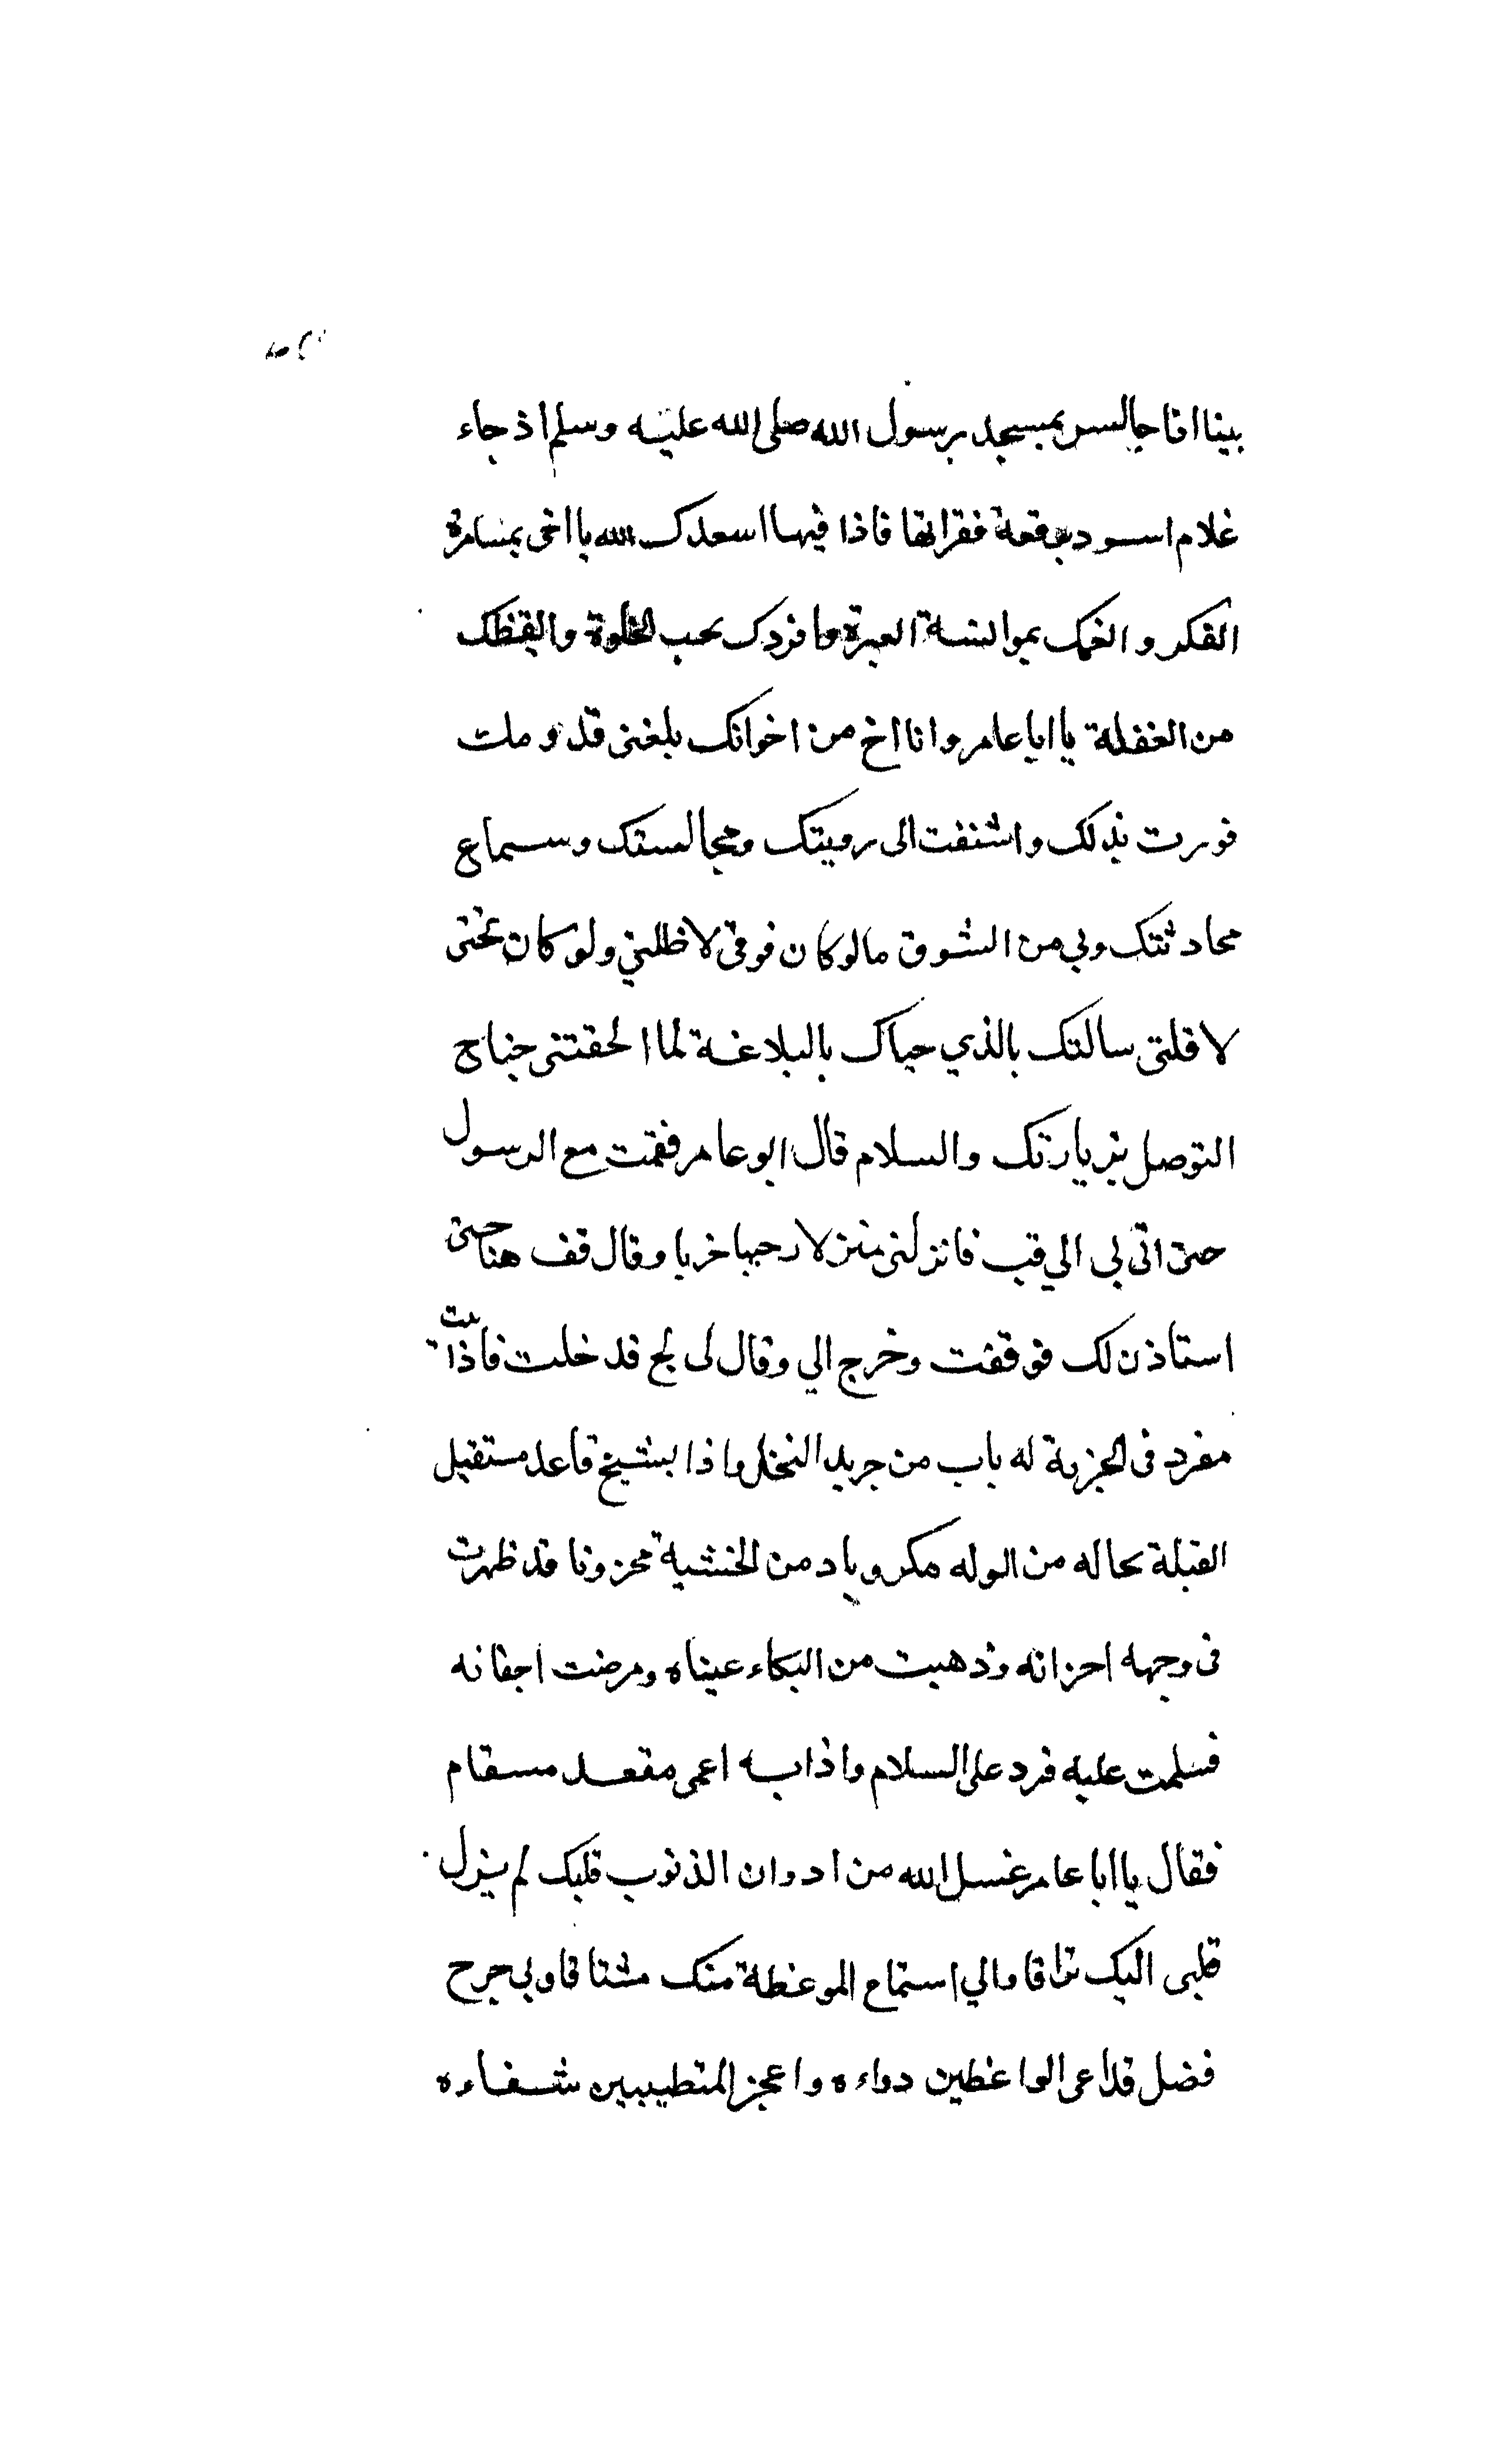 بينا انا جالس بمسجد رسول الله صلى الله عليه وسلم اذ جاء
غلام اسود برقعة فقراتها فاذا فيها اسعدك الله يا اخى بمسامرة
الفكر و انعمك بموانسة العبرة وافردك بحب الخلوة وايقظك
من الغفلة يا ابا عامر وانا اخ من اخوانك بلغنى قدومك
فسررت بذلك واشتقت الى رويتك ومجالستك وسماع
محادثتك وبي من الشوق مالو كان فوقى لاظلني ولو كان تحتى
لاقلتى سالتك بالذي حباك بالبلاغة لما الحقتنى جناح
التوصل بزيارتك والسلام قال ابو عامر فقمت مع الرسول
حتى اتى بي الي قب فانزلنى منزلا رحيبا خربا وقال قف هنا حتى
استاذن لك فوقفت وخرج الي وقال لى لج فدخلت فاذا بيت
مفرد فى الخربة له باب من جريد النخل واذا بشيخ قاعد مستقبل
القبلة تخاله من الوله مكروبا ومن الخشية محزونا قد ظهرت
فى وجهه احزانه وذهبت من البكاء عيناه ومرضت اجفانه
فسلمت عليه فرد على السلام واذا به اعمى مقعد مسقام
فقال يا ابا عامر غسل الله من ادران الذنوب قلبك لم يزل
قلبى اليك تواقا والي استماع الموعظة منك مشتاقا وبي جرح
فضل قد اعى الواعظين دواءه واعجز المتطببين شفاءه